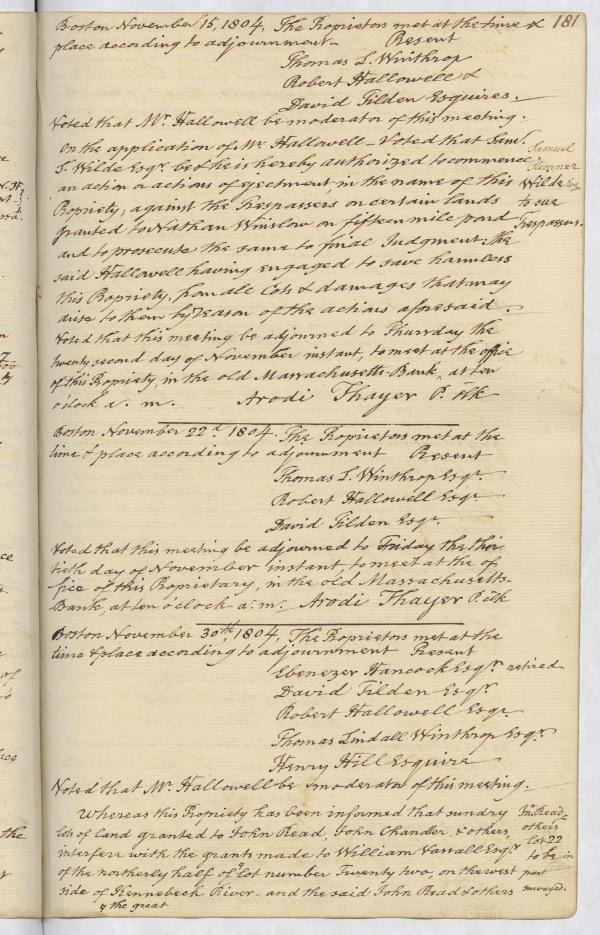 181
Boston November 15, 1804. The Proprietors met at the time &
place according to adjournment – Present
Thomas L. Winthrop
Robert Hallowell &
David Tilden Esquires. –
Voted that Mr. Hallowell be moderator of this meeting.
On the application of Mr. Hallowell – Voted that Saml.
S. Wilde Esqr. be & he is hereby authorized to commence
an action or actions of ejectment in the name of this
Propriety, against the Trespassers on certain lands
granted to Nathan Winslow on fifteen mile pond
and to prosecute the same to final Judgment: the
said Hallowell having engaged to save harmless
this Propriety, from all Cost & damages that may
arise to them by reason of the actions aforesaid.
Samuel
Sumner
Wilde Esq.
to sue
Trespassers.
Voted that this meeting be adjourned to Thursday the
twenty second day of November instant, to meet at the office
of this Propriety, in the old Massachusetts Bank, at ten
o'clock a. m. Arodi Thayer P. Clk
Boston November 22d. 1804. The Proprietors met at the
time & place according to adjournment Present
Thomas L. Winthrop Esqr.
Robert Hallowell Esqr
David Tilden Esqr.
Voted that this meeting be adjourned to Friday the thir
tieth day of November instant, to meet at the of
fice of this Proprietary, in the old Massachusetts
Bank, at ten o'clock a. m. Arodi Thayer P. Clk
Boston November 30th. 1804. The Proprietors met at the
time & place according to adjournment Present
Ebenezer Hancock Esqr. retired
David Tilden Esqr.
Robert Hallowell Esqr.
Thomas Lindall Winthrop Esqr.
Henry Hill Esquire
Voted that Mr. Hallowell be moderator of this meeting.
Whereas this Propriety has been informed that sundry
lots of Land granted to John Read, John Chandler, & others
interfere with the grants made to William Vassall Esqr.
of the northerly half of lot number Twenty two, on the west
side of Kennebeck River – and the said John Read & others
& the great
Jn. Read
others
Lot 22
to be in
part
surveyed.